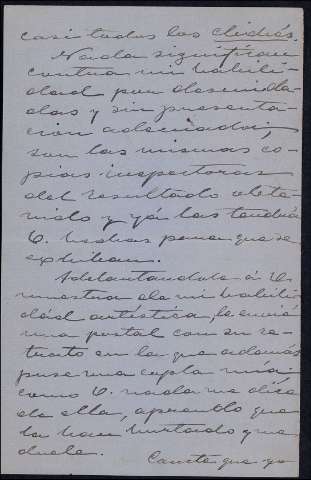 casi todos los clichés.
Nada significan
contra mi habili-
dad por descuida-
das y sin presenta-
ción adecuada;
son las mismas co-
pias inspectoras
del resultado obte-
nido y ya las tendrá
V. hechas para que se
exhiban.
Adelantandole á V.
muestra de mi habili-
dad artística, le envié
una postal con su re-
trato en la que además
puse una copla mía:
como V. nada me dice
de ella, aprendo que
la han hurtado y me
duele.
Conste que yo